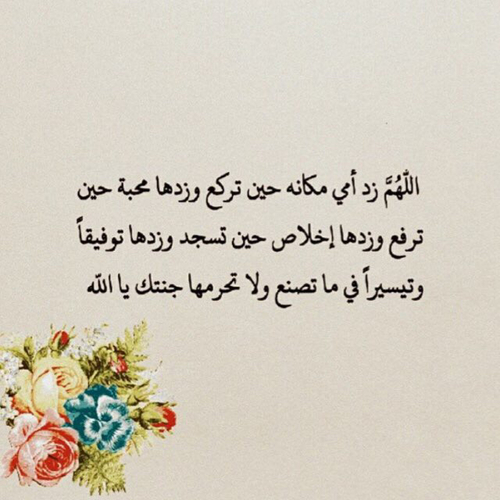 اللّٰهُمَّ زد أمي مكانه حين تركع وزدها محبة حين
ترفع وزدها إخلاص حين تسجد وزدها توفيقاً
وتيسيراً في ما تصنع ولا تحرمها جنتك يا الله